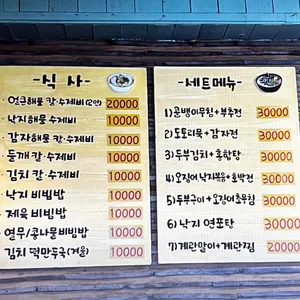 -식 사-
얼큰해물 칼·수제비(2인) 20000
낙지해물 칼·수제비 10000
감자해물 칼·수제비 10000
들깨 칼·수제비 10000
김치 칼·수제비 10000
낙지 비빔밥 10000
제육 비빔밥 10000
열무/콩나물비빔밥 10000
김치 떡만두국(겨울) 10000
-세트메뉴-
1) 골뱅이무침+부추전 30000
2) 도토리묵+감자전 30000
3) 두부김치+홍합탕 30000
4) 오징어 낙지볶음+호박전 30000
5) 두부구이+오징어초무침 30000
6) 낙지 연포탕 30000
7) 계란말이+계란찜 20000